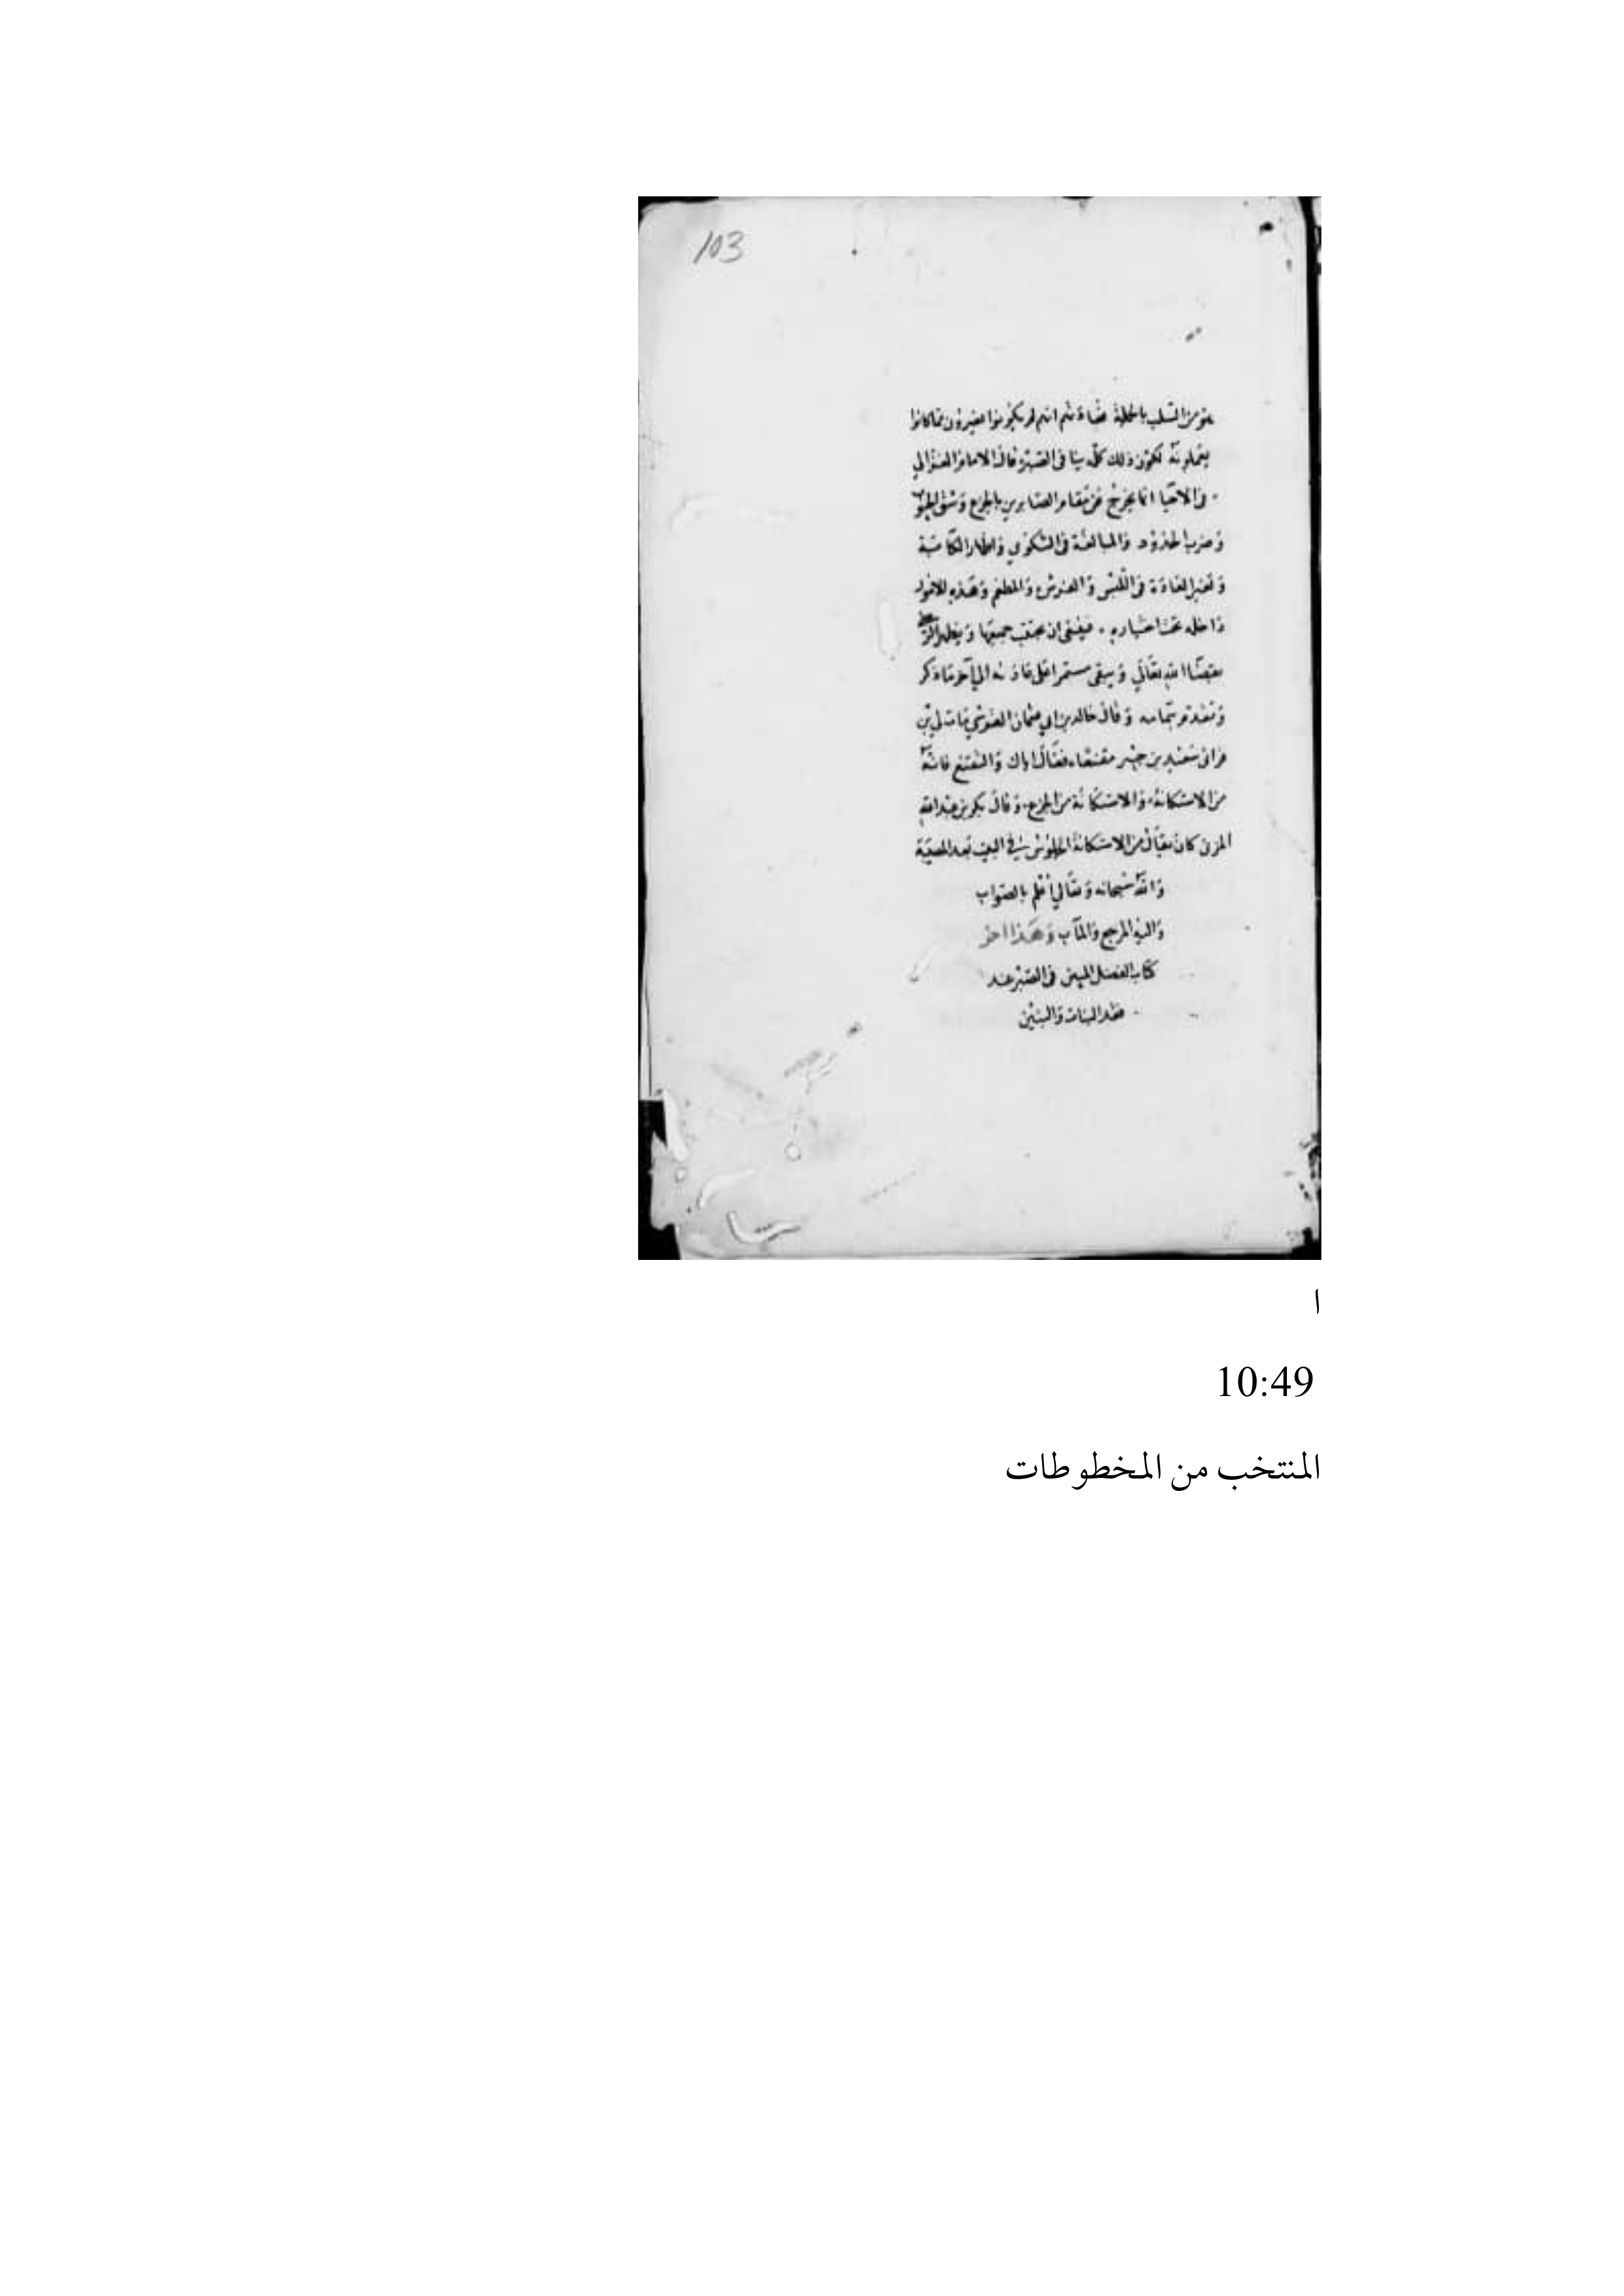 103
من السلب بالجملة فضلا ثم انهم لم يكونوا مغيرون مما كانوا
يعملونه لكون ذلك كله ينافى الصبر قال الامام الغزالي
فى الاحيا انما يخرج عن مقام الصابرين بالجزع وشق الجيوب
وضرب الخدود والمبالغة فى الشكوي واظهار الكآبة
وتغير العادة فى الملبس والمفرش والمطعم وهذه الامور
داخلة تحت اختياره فينبغى ان يجتنب جميعها ويظهر الرضى
بقضا الله تعالي ويبقى مستمرا على عادته الي آخر ما ذكر
وتقدم بتمامه وقال خالد بن ابي عثمان القرشي مات لي ابن
فراى سعيد بن جبير مقنعا فقال اياك والتقنع فانه
من الاستكانة والاستكانة من الجزع وقال بكر بن عبد الله
المزنى كان يقال من الاستكانة الجلوس في البيت بعد المصيبة
والله سبحانه وتعالي أعلم بالصواب
واليه المرجع والمآب وهذا اخر
كتاب الفضل المبين فى الصبر عند
فقد البنات والبنين
ا
10:49
المنتخب من المخطوطات